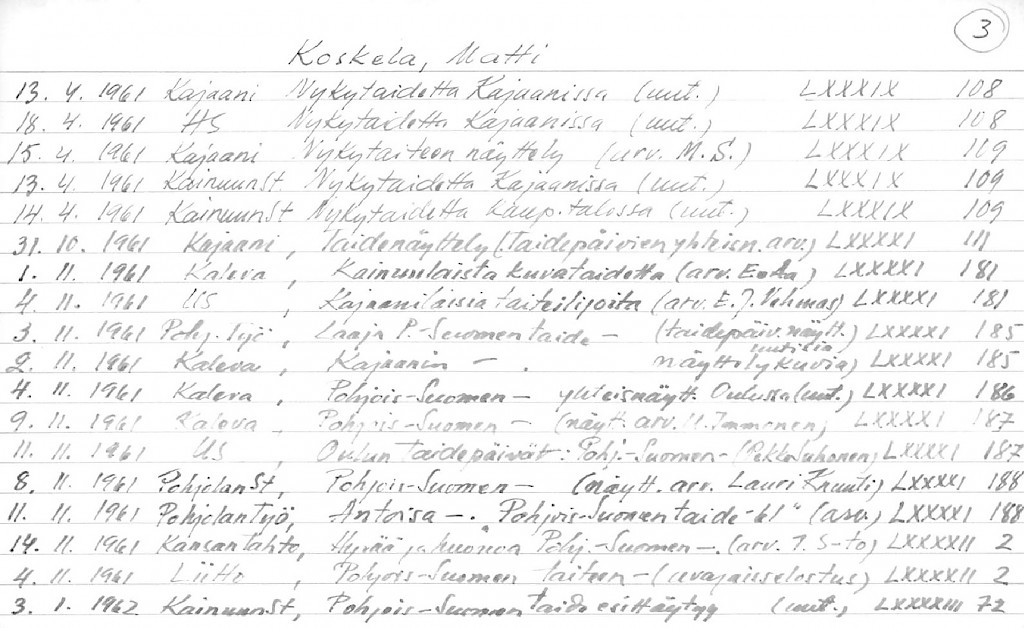 3
Koskela, Matti
13. 4. 1961 Kajaani Nykytaidetta Kajaanissa (uut.) LXXXIX 108
18. 4. 1961 HS Nykytaidetta Kajaanissa (uut.) LXXXIX 108
15. 4. 1961 Kajaani Nykytaiteen näyttely (arv. M.S.) LXXXIX 109
13. 4. 1961 Kainuun St. Nykytaidetta Kajaanissa (uut.) LXXXIX 109
14. 4. 1961 Kainuun St Nykytaidetta kaup.talossa (uut.) LXXXIX 109
31. 10. 1961 Kajaani, Taidenäyttely (Taidepäivien yhteisn. arv.) LXXXXI 111
1. 11. 1961 Kaleva, Kainuulaista kuvataidetta (arv. ) LXXXXI 181
4. 11. 1961 US, Kajaanilaisia taiteilijoita (arv. E.J. Vehmas) LXXXXI 181
3. 11. 1961 Pohj. Työ, Laaja P.-Suomen taide - (taidepäiv. näytt.) LXXXXI 185
2. 11. 1961 Kaleva, Kajaanin - . uutisia näyttelykuvia) LXXXXI 185
4. 11. 1961 Kaleva, Pohjois-Suomen - yhteisnäytt. Oulussa (uut.) LXXXXI 186
9. 11. 1961 Kaleva - Pohjois-Suomen - (näytt. arv. U. Immonen) LXXXXI 187
11. 11. 1961 US, Oulun taidepäivät: Pohj.-Suomen - (Pekka Suhonen) LXXXXI 187
8. 11. 1961 Pohjolan St, Pohjois-Suomen - (näytt. arv. Lauri ) LXXXXI 188
11. 11. 1961 Pohjolan työ, Antoisa -. "Pohjois-Suomen taide -61" (arv.) LXXXXI 188
14. 11. 1961 Kansan tahto, Hyvää ja huonoa Pohj.-Suomen -. (arv. T. S-to) LXXXXII 2
4. 11. 1961 Liitto, Pohjois-Suomen taiteen - (avajaisselostus) LXXXXII 2
3. 1. 1962 Kainuun St, Pohjois-Suomen taide esittäytyy (uut.) LXXXXIII 72